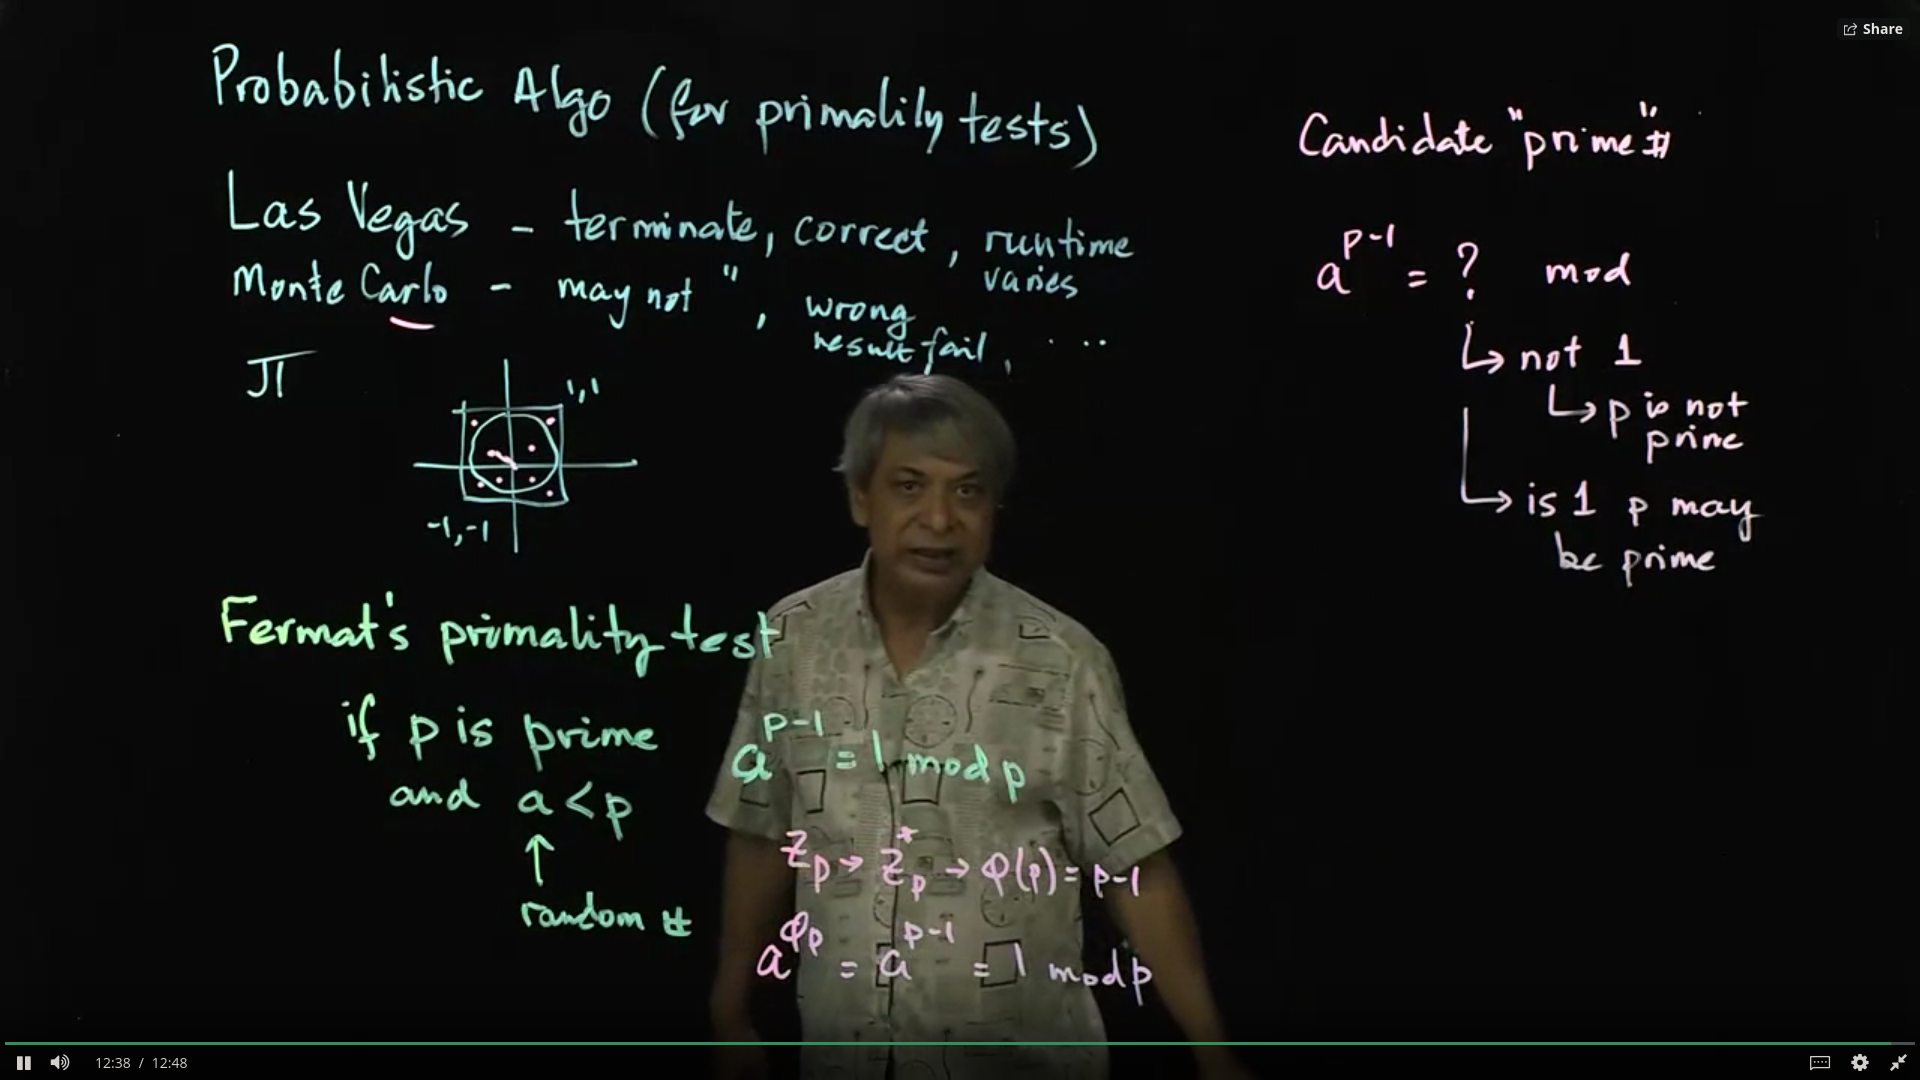 Share
Probabilistic Algo (for primality tests)
Las Vegas - terminate, correct, runtime
varies
Monte Carlo - may not ", wrong
result fail, ...
π
1,1
-1,-1
Fermat's primality test
if p is prime
a^{p-1} = 1 mod p
and a < p
↑
random #
Z_p → Z*_p → φ(p) = p-1
a^{φp} = a^{p-1} = 1 mod p
Candidate "prime" #
a^{p-1} = ? mod
↳ not 1
↳ p is not
prime
↳ is 1 p may
be prime
12:38 / 12:48